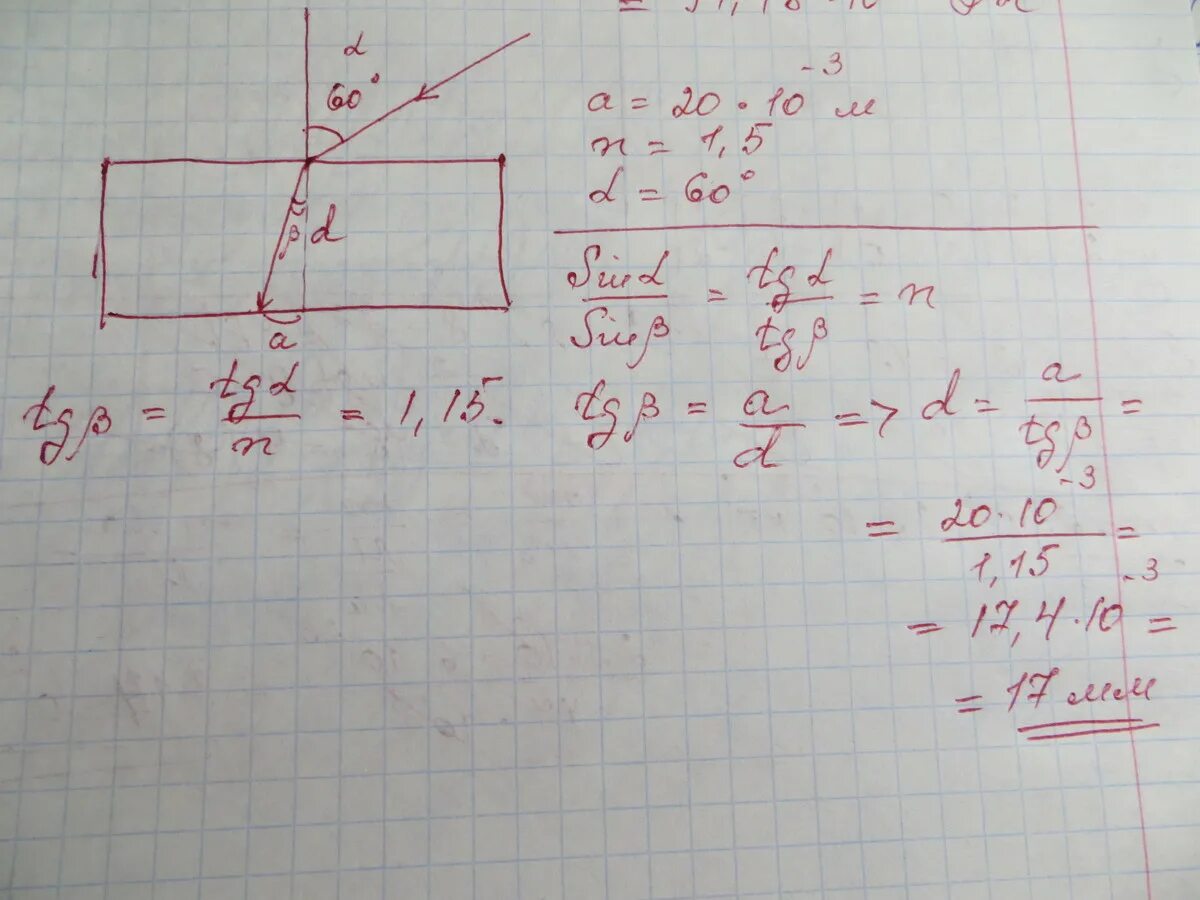 α
60°
β d
a
a = 20 · 10⁻³ м
n = 1,5
α = 60°
Sinα/Sinβ = tgα/tgβ = n
tgβ = tgα/n = 1,15.
tgβ = a/d => d = a/tgβ =
= 20·10⁻³/1,15 =
= 17,4·10⁻³ =
= 17 мм